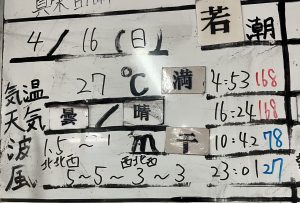 若潮
4/16(日)
気温 27℃ 満 4:53 168
天気 曇/晴 16:24 168
波 1.5~1m 干 10:42 78
北北西 西北西
風 5~5~3~3 23:01 27